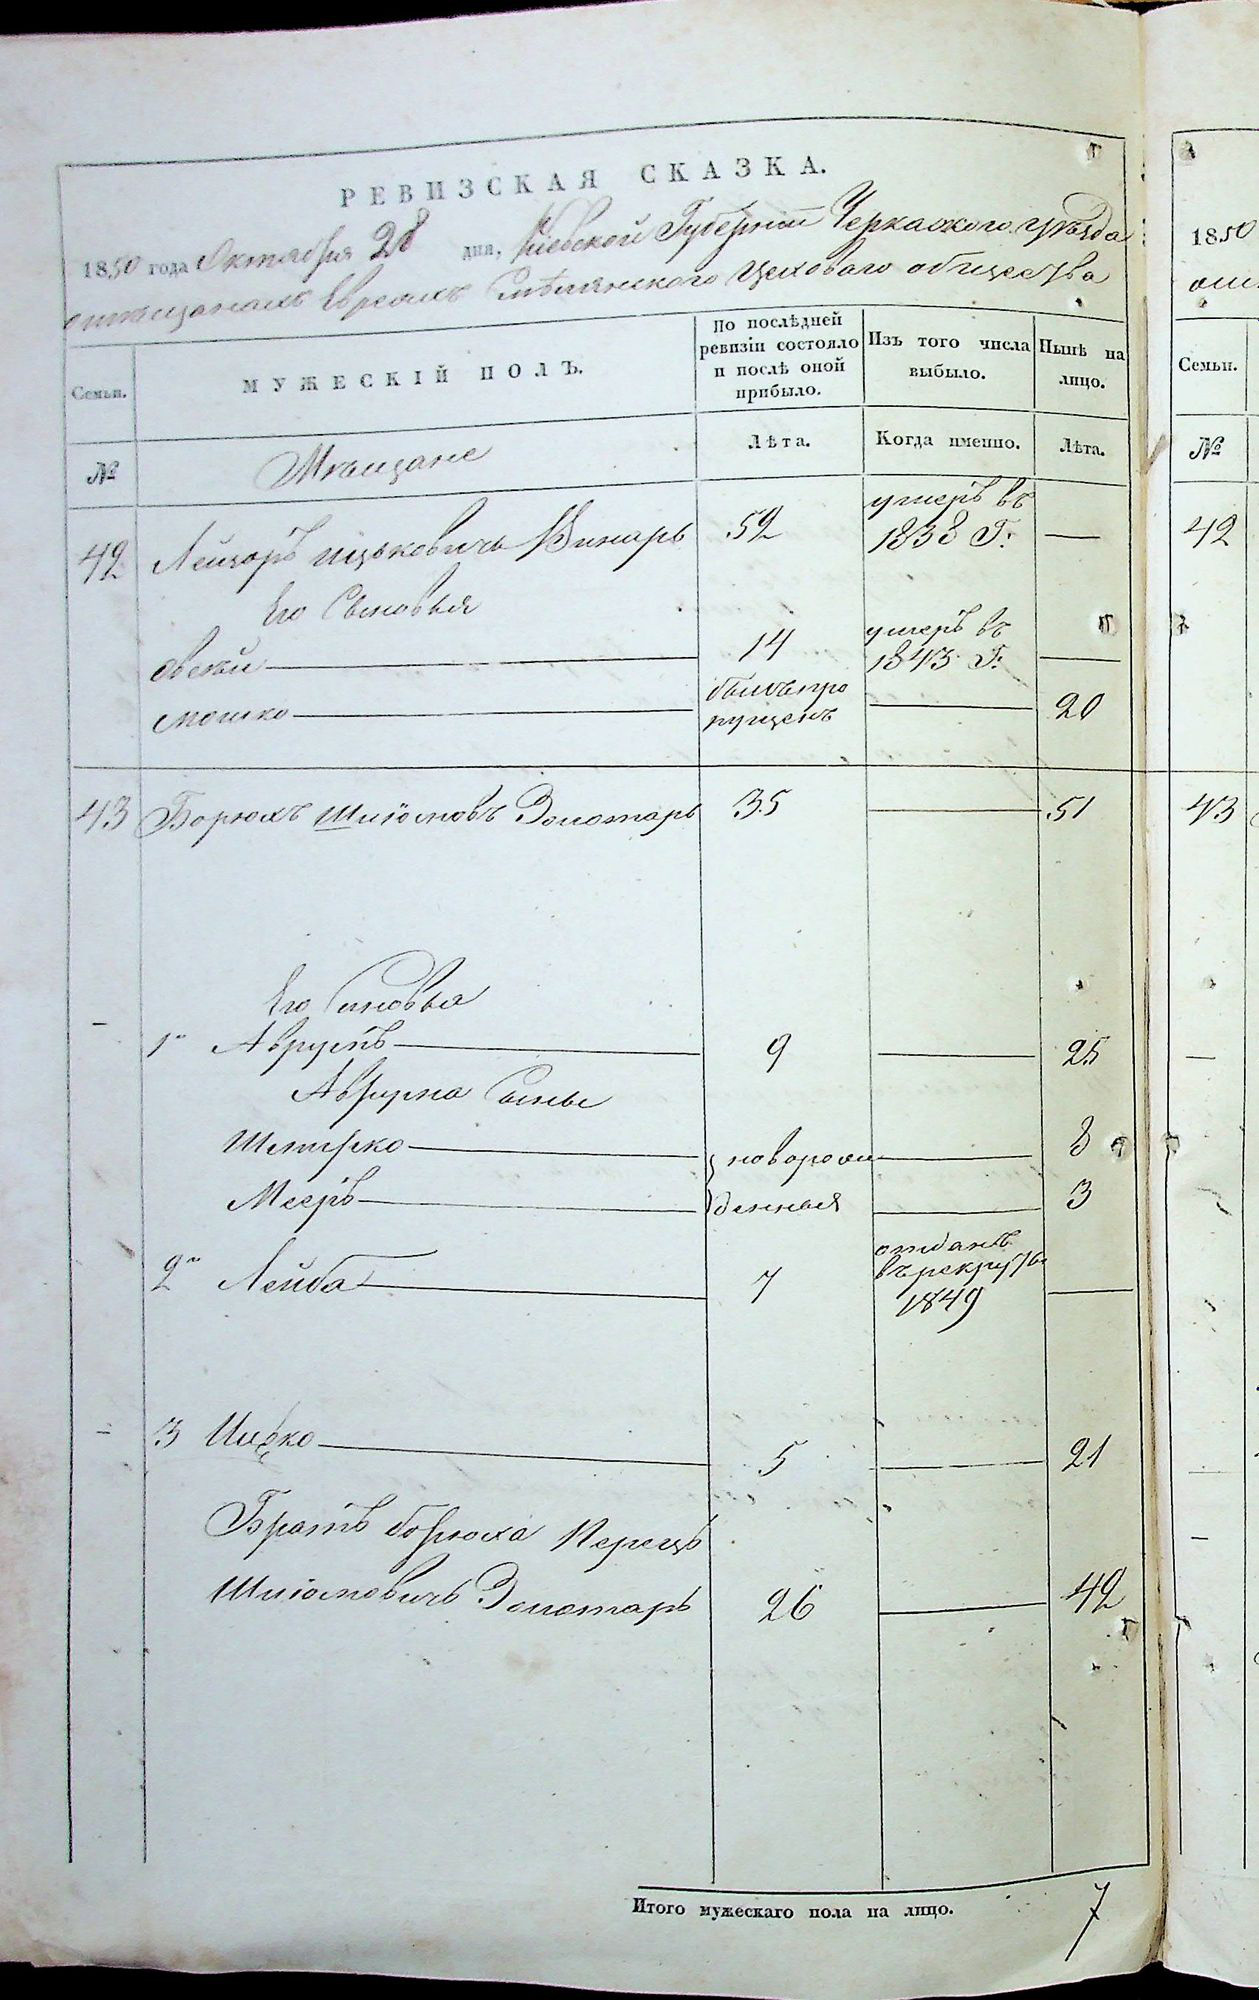 РЕВИЗСКАЯ СКАЗКА.
1850 года Октября 28 дня, Киевской Губернии Черкаского уѣзда
омѣщанахъ Евреяхъ Смѣлянского Цеховаго общества
Семьи.
МУЖЕСКІЙ ПОЛЪ.
По послѣдней
ревизіи состояло
и послѣ оной
прибыло.
Изъ того числа
выбыло.
Нынѣ на
лицо.
№
Мѣщане
Лѣта.
Когда именно.
Лѣта.
42 Лейзоръ Ицьковичь Винарь 52 умеръ въ
1838 Г: —
Его Сыновья
Овсѣй 14 умеръ въ
1843 Г: —
Мошко былъ про
пущенъ — 20
43 Борюхъ Шліомовъ Золотарь 35 — 51
Его Синовья
1й Аврумъ 9 — 25
Аврума Сыны
Шмерко новорож — 8
Мееръ денныя — 3
2й Лейба 7 отданъ
въ рекруты
1849 —
3 Ицко 5 — 21
Братъ борюха Перецъ
Шліомовичъ Золотарь 26 — 42
Итого мужескаго пола на лицо. 7
1850
Семьи.
№
42
43